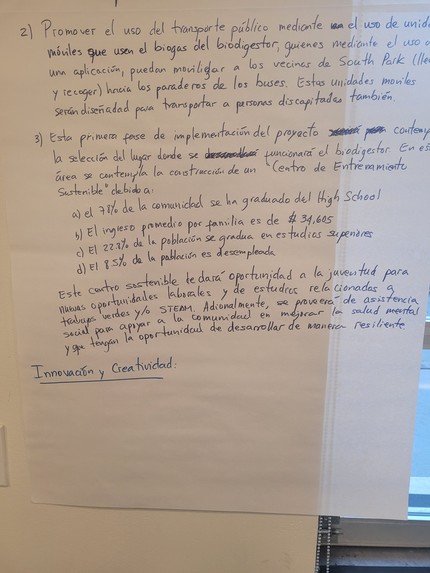 2) Promover el uso del transporte público mediante el uso de unid
móviles que usen el biogas del biodigestor, quienes mediante el uso d
una aplicación, puedan movilizar a los vecinos de South Park (lle
y recoger) hacia los paraderos de los buses. Estas unidades moviles
serán diseñadad para transportar a personas discapitadas también.
3) Esta primera fase de implementación del proyecto contemp
la selección del lugar donde se funcionará el biodigestor. En es
área se contempla la construcción de un "Centro de Entrenamiento
Sostenible" debido a:
a) el 78% de la comunidad se ha graduado del High School
b) El ingreso promedio por familia es de $ 34,605
c) El 22.8% de la población se gradua en estudios superiores
d) El 8.5% de la población es desempleada
Este centro sostenible le dará oportunidad a la juventud para
nuevas oportunidades laborales y de estudios relacionadas a
trabajos verdes y/o STEAM. Adionalmente, se proveerá de asistencia
social para apoyar a la comunidad en mejorar la salud mental
y que tengan la oportunidad de desarrollar de manera resiliente
Innovación y Creatividad: